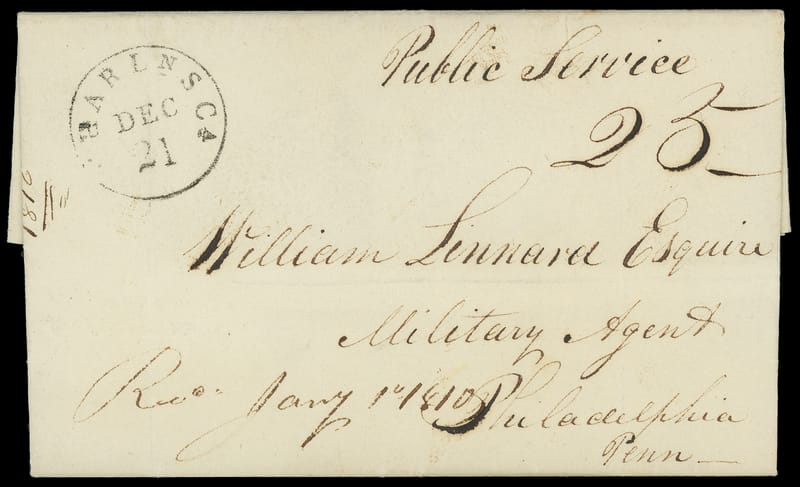 Public Service
CHARLNS Ca
DEC
21
25
1810
William Linnard Esquire
Military Agent
Recd. Jany 1st 1810
Philadelphia
Penn